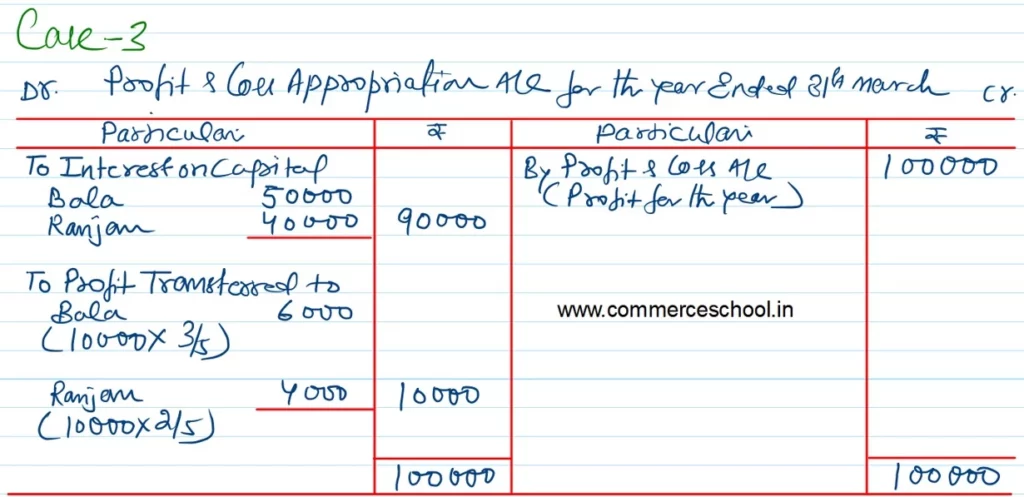 Case-3
Dr. Profit & Loss Appropriation A/c for the year Ended 31st march Cr.
Particulars ₹ Particulars ₹
To Interest on Capital By Profit & Loss A/c 100000
Bala 50000 (Profit for the year)
Ranjan 40000 90000
To Profit Transferred to
Bala 6000 www.commerceschool.in
(10000 x 3/5)
Ranjan 4000 10000
(10000 x 2/5)
100000 100000